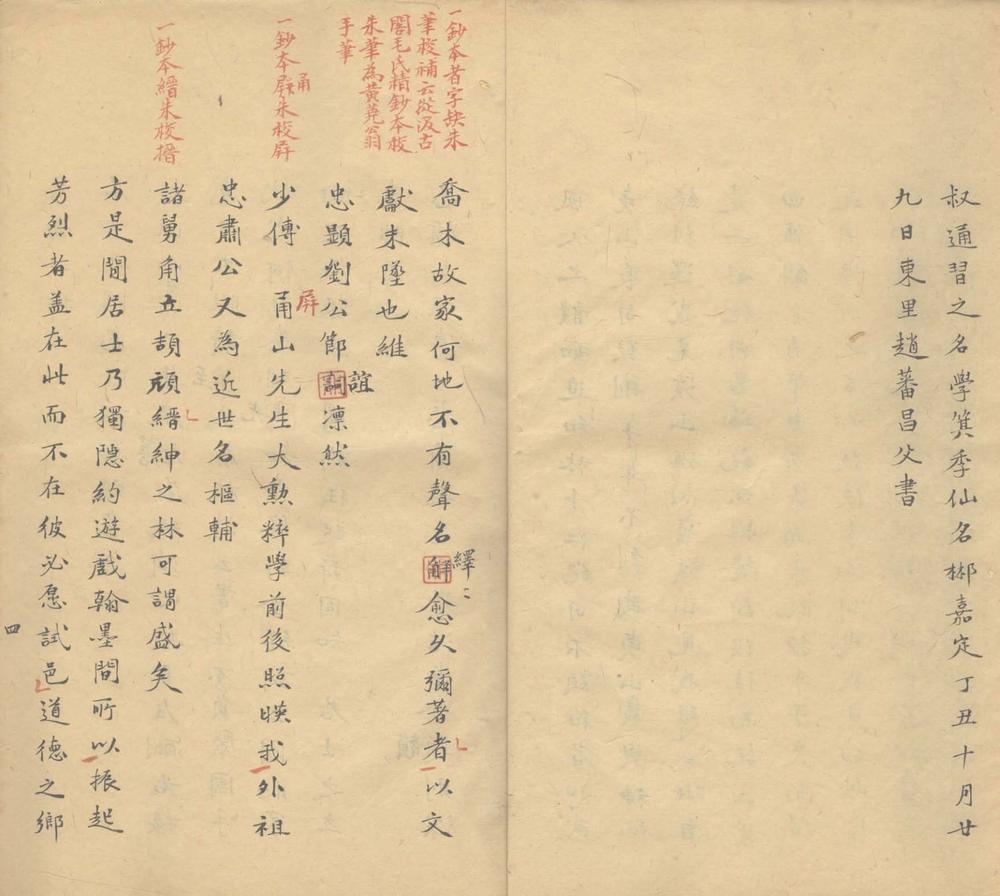 叔通習之名學箕季仙名郴嘉定丁丑十月廿
九日東里趙蕃昌父書
一鈔本者字缺朱
筆校補云從汲古
閣毛氏精鈔本校
朱筆為黃蕘翁
手筆
一鈔本屛朱校屏
甬
一鈔本縉朱校搢
喬木故家何地不有聲名解愈久彌著者以文
繹
獻未墜也維
忠顯劉公節嗣凛然
誼
少傅甬山先生大勲粹學前後照暎我外祖
屏
忠肅公又為近世名樞輔
諸舅角立頡頏縉紳之林可謂盛矣
方是閒居士乃獨隱約遊戲翰墨間所以振起
芳烈者盖在此而不在彼必愿試邑道德之鄉
四